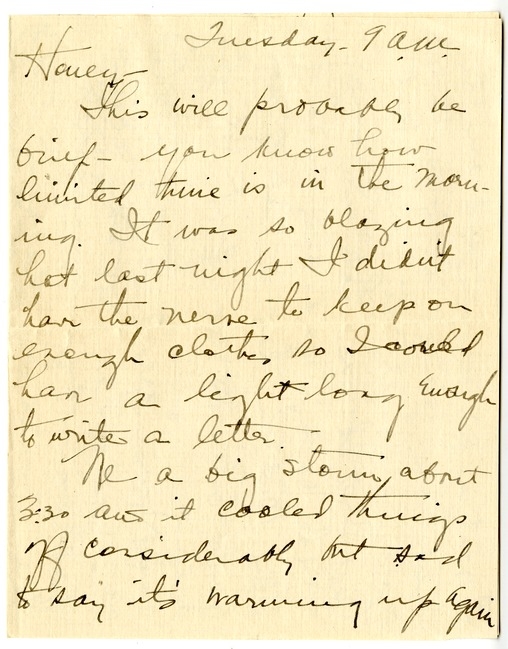 Tuesday - 9 a.m.
Honey -
This will probably be
brief - you know how
limited time is in the morn-
ing. It was so blazing
hot last night I didn't
have the nerve to keep on
enough clothes so I could
have a light long enough
to write a letter.
We a big storm about
3:30 and it cooled things
off considerably but sad
to say it's warming up again